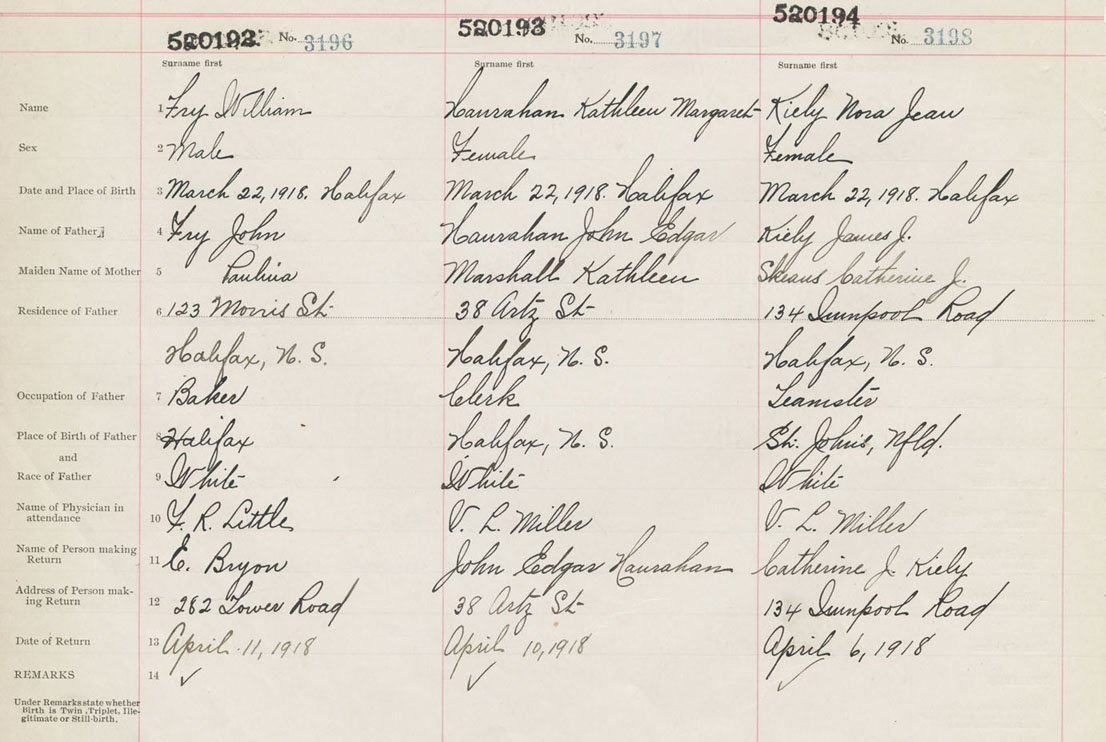 520192. No. 3196 520193 No. 3197 520194 No. 3198
Surname first Surname first Surname first
Name 1 Fry William Hanrahan Kathleen Margaret Kiely Nora Jean
Sex 2 Male Female Female
Date and Place of Birth 3 March 22, 1918. Halifax March 22, 1918. Halifax March 22, 1918. Halifax
Name of Father 4 Fry John Hanrahan John Edgar Kiely James J.
Maiden Name of Mother 5 Paulina Marshall Kathleen Skeans Catherine J.
Residence of Father 6 123 Morris St. 38 Artz St. 134 Quinpool Road
Halifax, N. S. Halifax, N. S. Halifax, N. S.
Occupation of Father 7 Baker Clerk Teamster
Place of Birth of Father 8 Halifax Halifax, N. S. St. Johns, Nfld.
and
Race of Father 9 White White White
Name of Physician in
attendance 10 F. R. Little V. L. Miller V. L. Miller
Name of Person making
Return 11 E. Bryon John Edgar Hanrahan Catherine J. Kiely
Address of Person mak-
ing Return 12 262 Tower Road 38 Artz St. 134 Quinpool Road
Date of Return 13 April 11, 1918 April 10, 1918 April 6, 1918
REMARKS 14
Under Remarks state whether
Birth is Twin, Triplet, Ille-
gitimate or Still-birth.